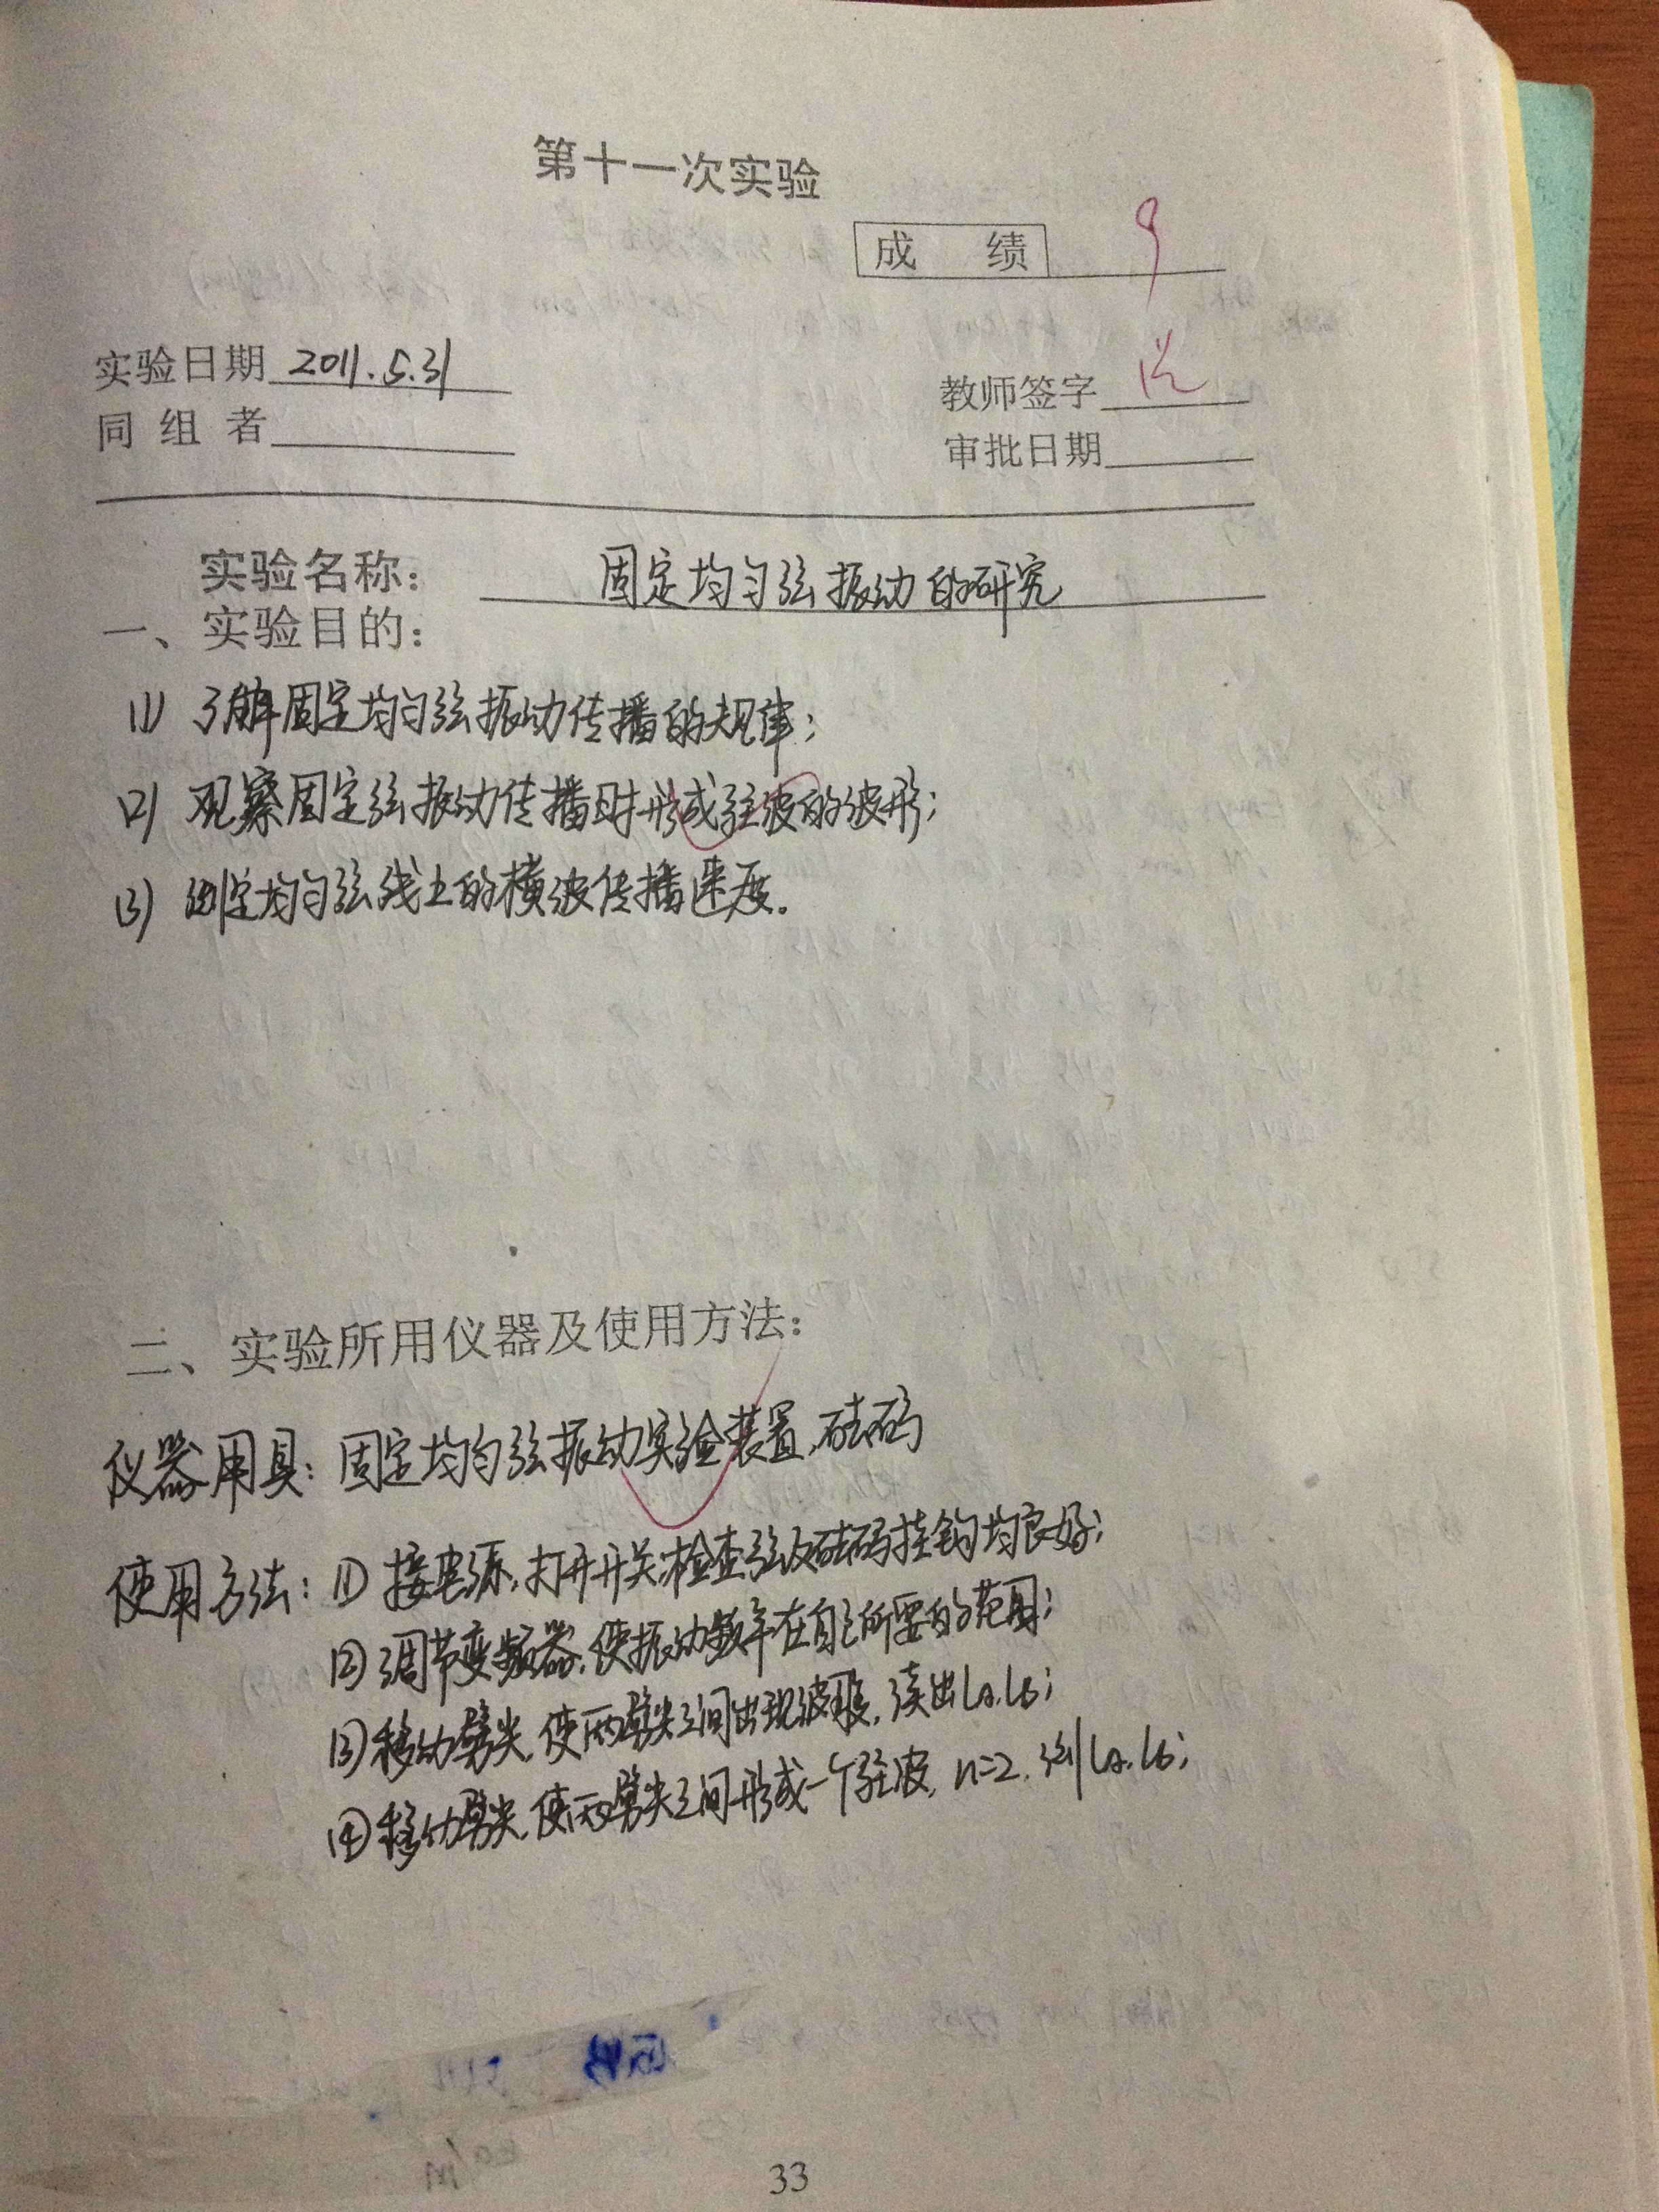 第十一次实验
成 绩 9
实验日期 2011.5.31
教师签字
同 组 者
审批日期
实验名称: 固定均匀弦振动的研究
一、实验目的:
(1) 了解固定均匀弦振动传播的规律;
(2) 观察固定弦振动传播时形成驻波的波形;
(3) 测定均匀弦线上的横波传播速度.
二、实验所用仪器及使用方法:
仪器用具: 固定均匀弦振动实验装置,砝码
使用方法: (1) 接电源,打开开关,检查弦及砝码挂钩均良好;
(2) 调节变频器,使振动频率在自己所要的范围;
(3) 移动劈尖,使两劈尖之间出现波形,读出La.Lb;
(4) 移动劈尖,使两劈尖之间形成一个驻波, n=2, 测La.Lb;
33